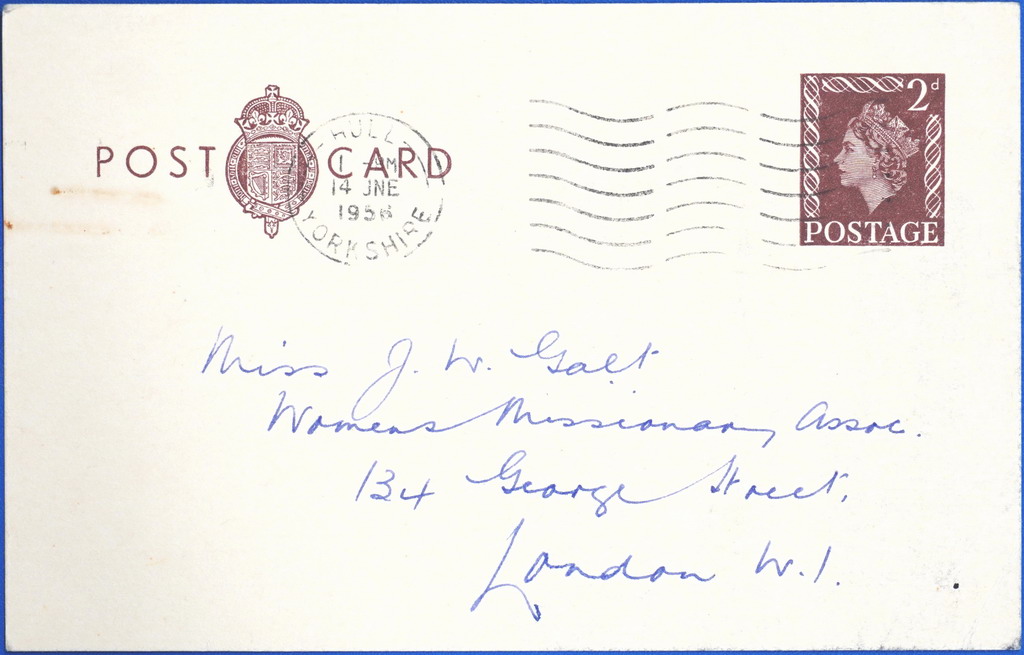 POST CARD
HULL
1 - AM
14 JNE
1956
YORKSHIRE
2d
POSTAGE
Miss J. W. Galt
Womens Missionary Assoc.
134 George Street,
London W.1.